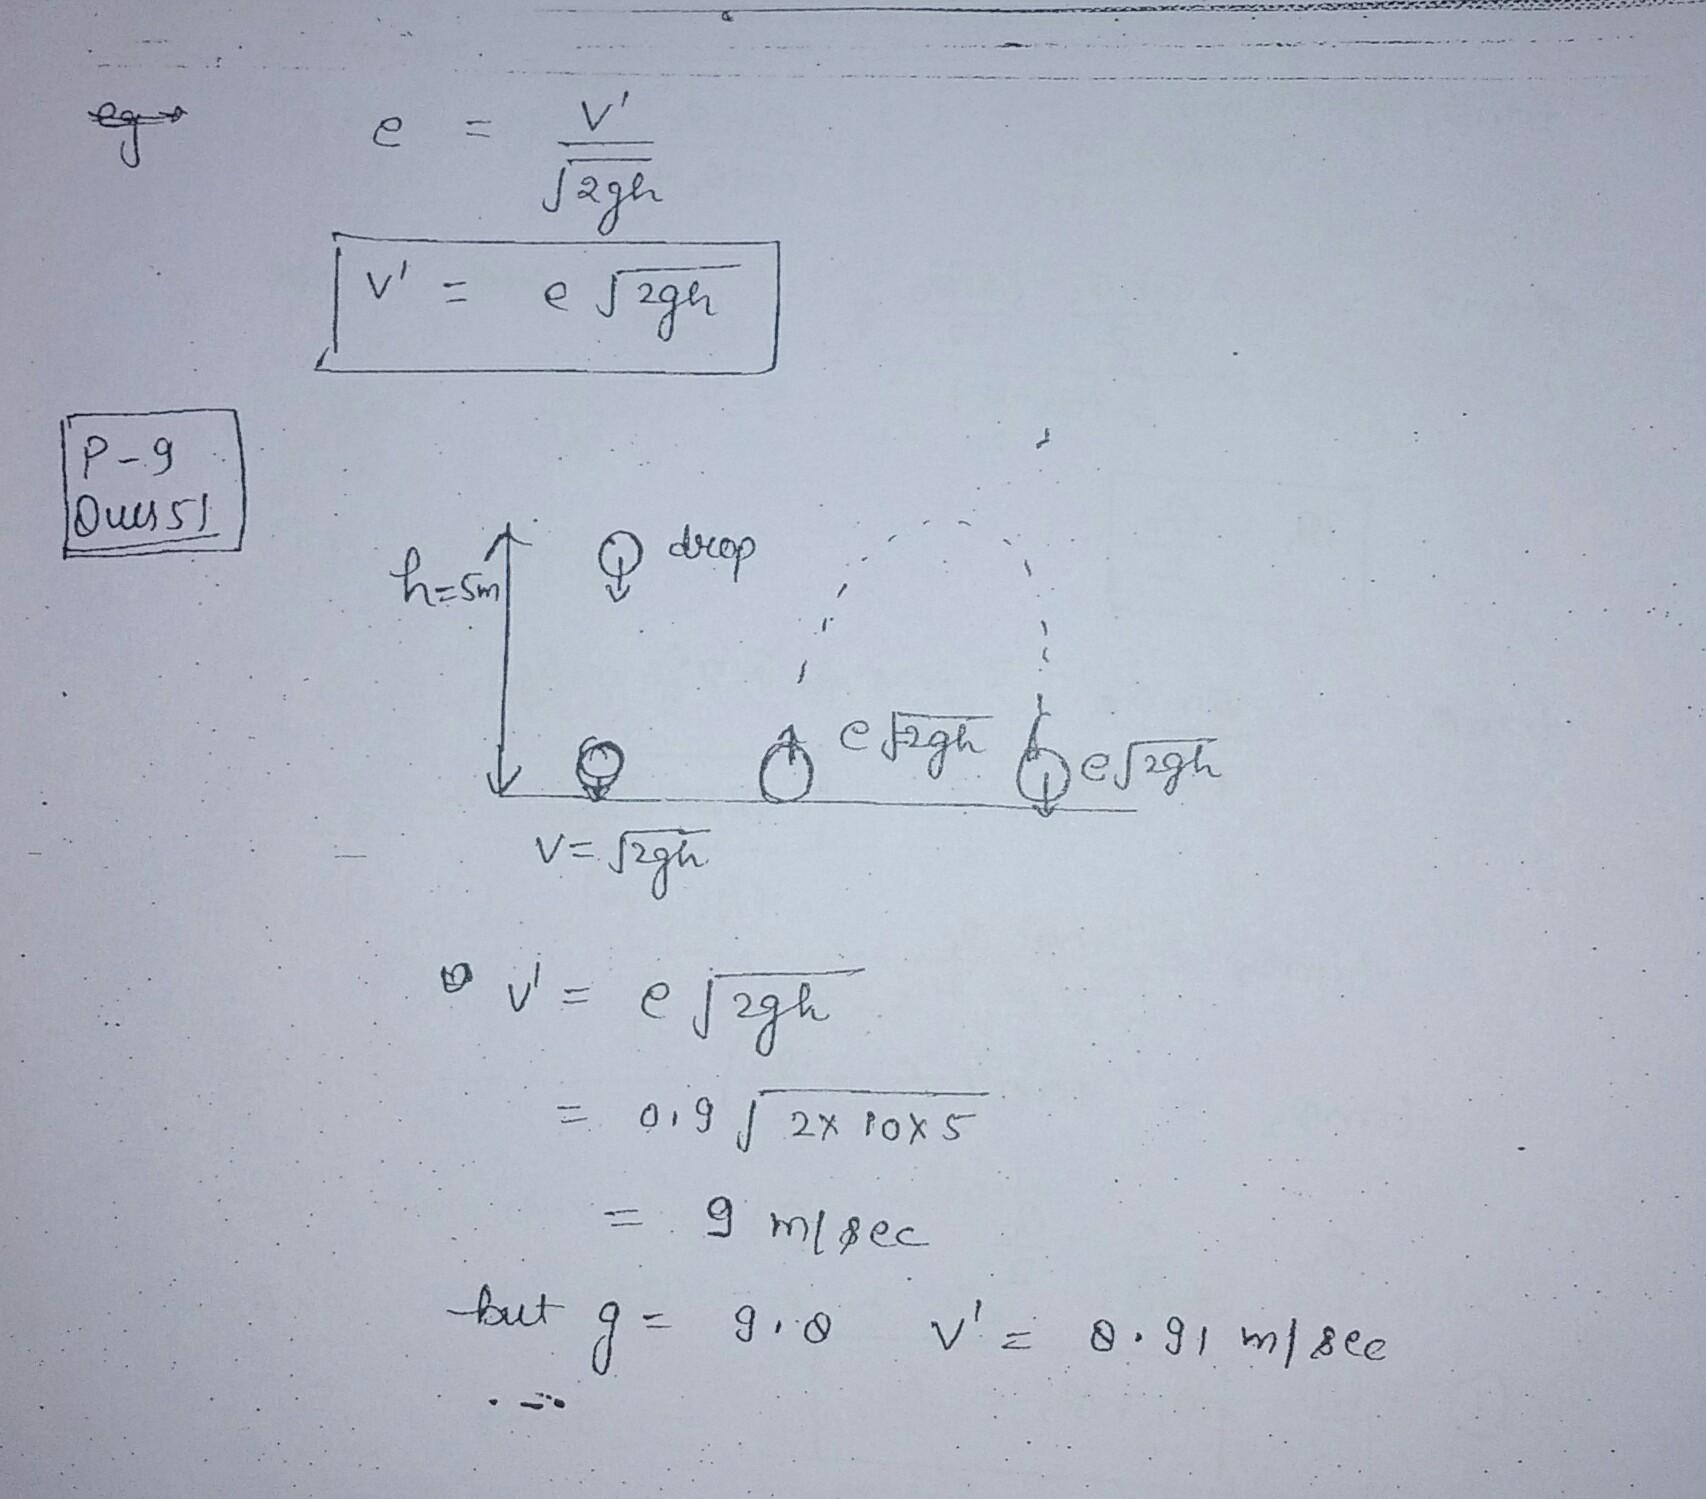 eg→ e = v'/√2gh
v' = e √2gh
P-9
Ques 51
drop
h=5m
e √2gh e√2gh
v= √2gh
v' = e √2gh
= 0.9 √2x10x5
= 9 m/sec
but g = 9.8 v' = 8.91 m/sec